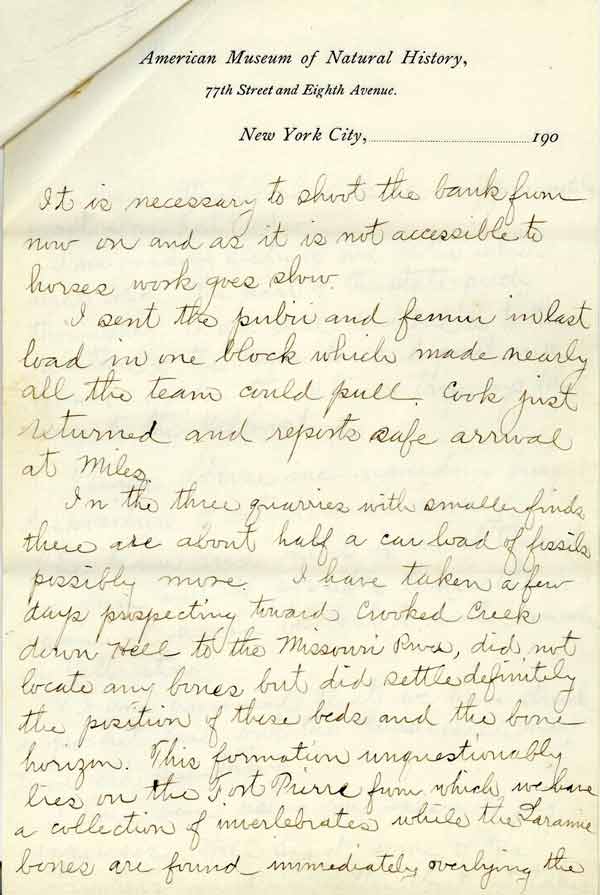 American Museum of Natural History,
77th Street and Eighth Avenue.
New York City, 190
It is necessary to shoot the bank from
now on and as it is not accessible to
horses work goes slow.
I sent the pubii and femur in last
load in one block which made nearly
all the team could pull. Cook just
returned and reports safe arrival
at Miles.
In the three quarries with smaller finds
there are about half a car load of fossils
possibly more. I have taken a few
days prospecting toward Crooked Creek
down Hell to the Missouri River, did not
locate any bones but did settle definitely
the position of these beds and the bone
horizon. This formation unquestionably
lies on the Fort Pierre from which we have
a collection of invertebrates while the Laramie
bones are found immediately overlying the